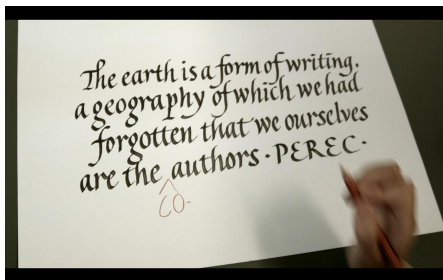 The earth is a form of writing,
a geography of which we had
forgotten that we ourselves
are the authors · PEREC ·
CO-